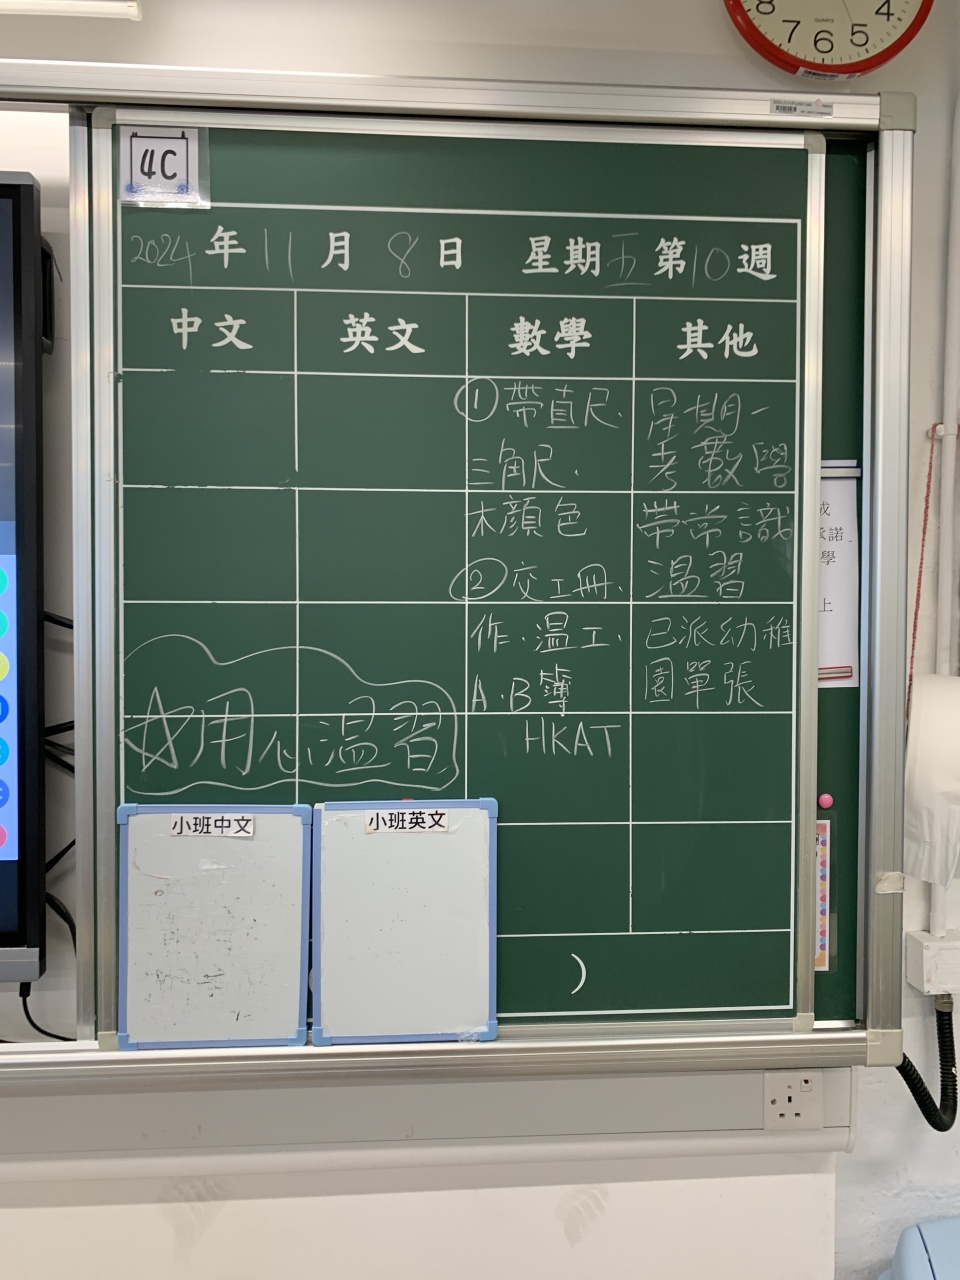 8 7 6 5 4
QUARTZ
4C
2024年11月8日 星期五第10週
中文 英文 數學 其他
①帶直尺.
三角尺.
木顏色
②交工冊.
作.溫工.
A.B簿
HKAT
星期一
考數學
帶常識
溫習
已派幼稚
園單張
☆用心溫習
小班中文
小班英文
)
成
承諾
學
上